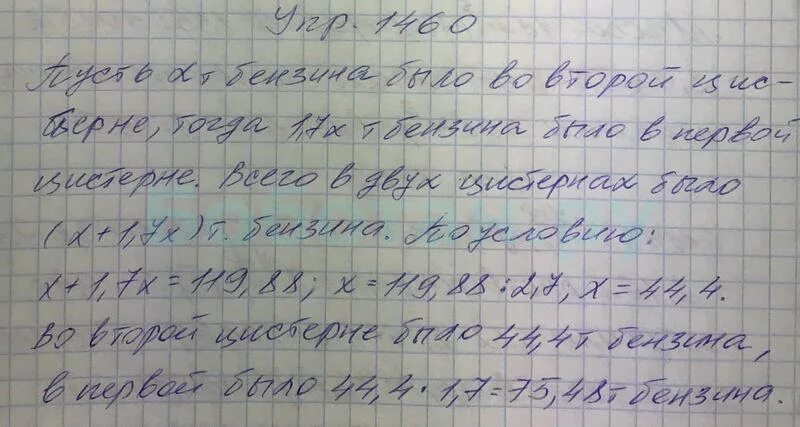 Упр. 1460
Пусть x т бензина было во второй цис-
терне, тогда 1,7x т бензина было в первой
цистерне. Всего в двух цистернах было
(x+1,7x) т. бензина. По условию:
x+1,7x=119,88; x=119,88:2,7, x=44,4.
Во второй цистерне было 44,4т бензина,
в первой было 44,4·1,7=75,48т бензина.